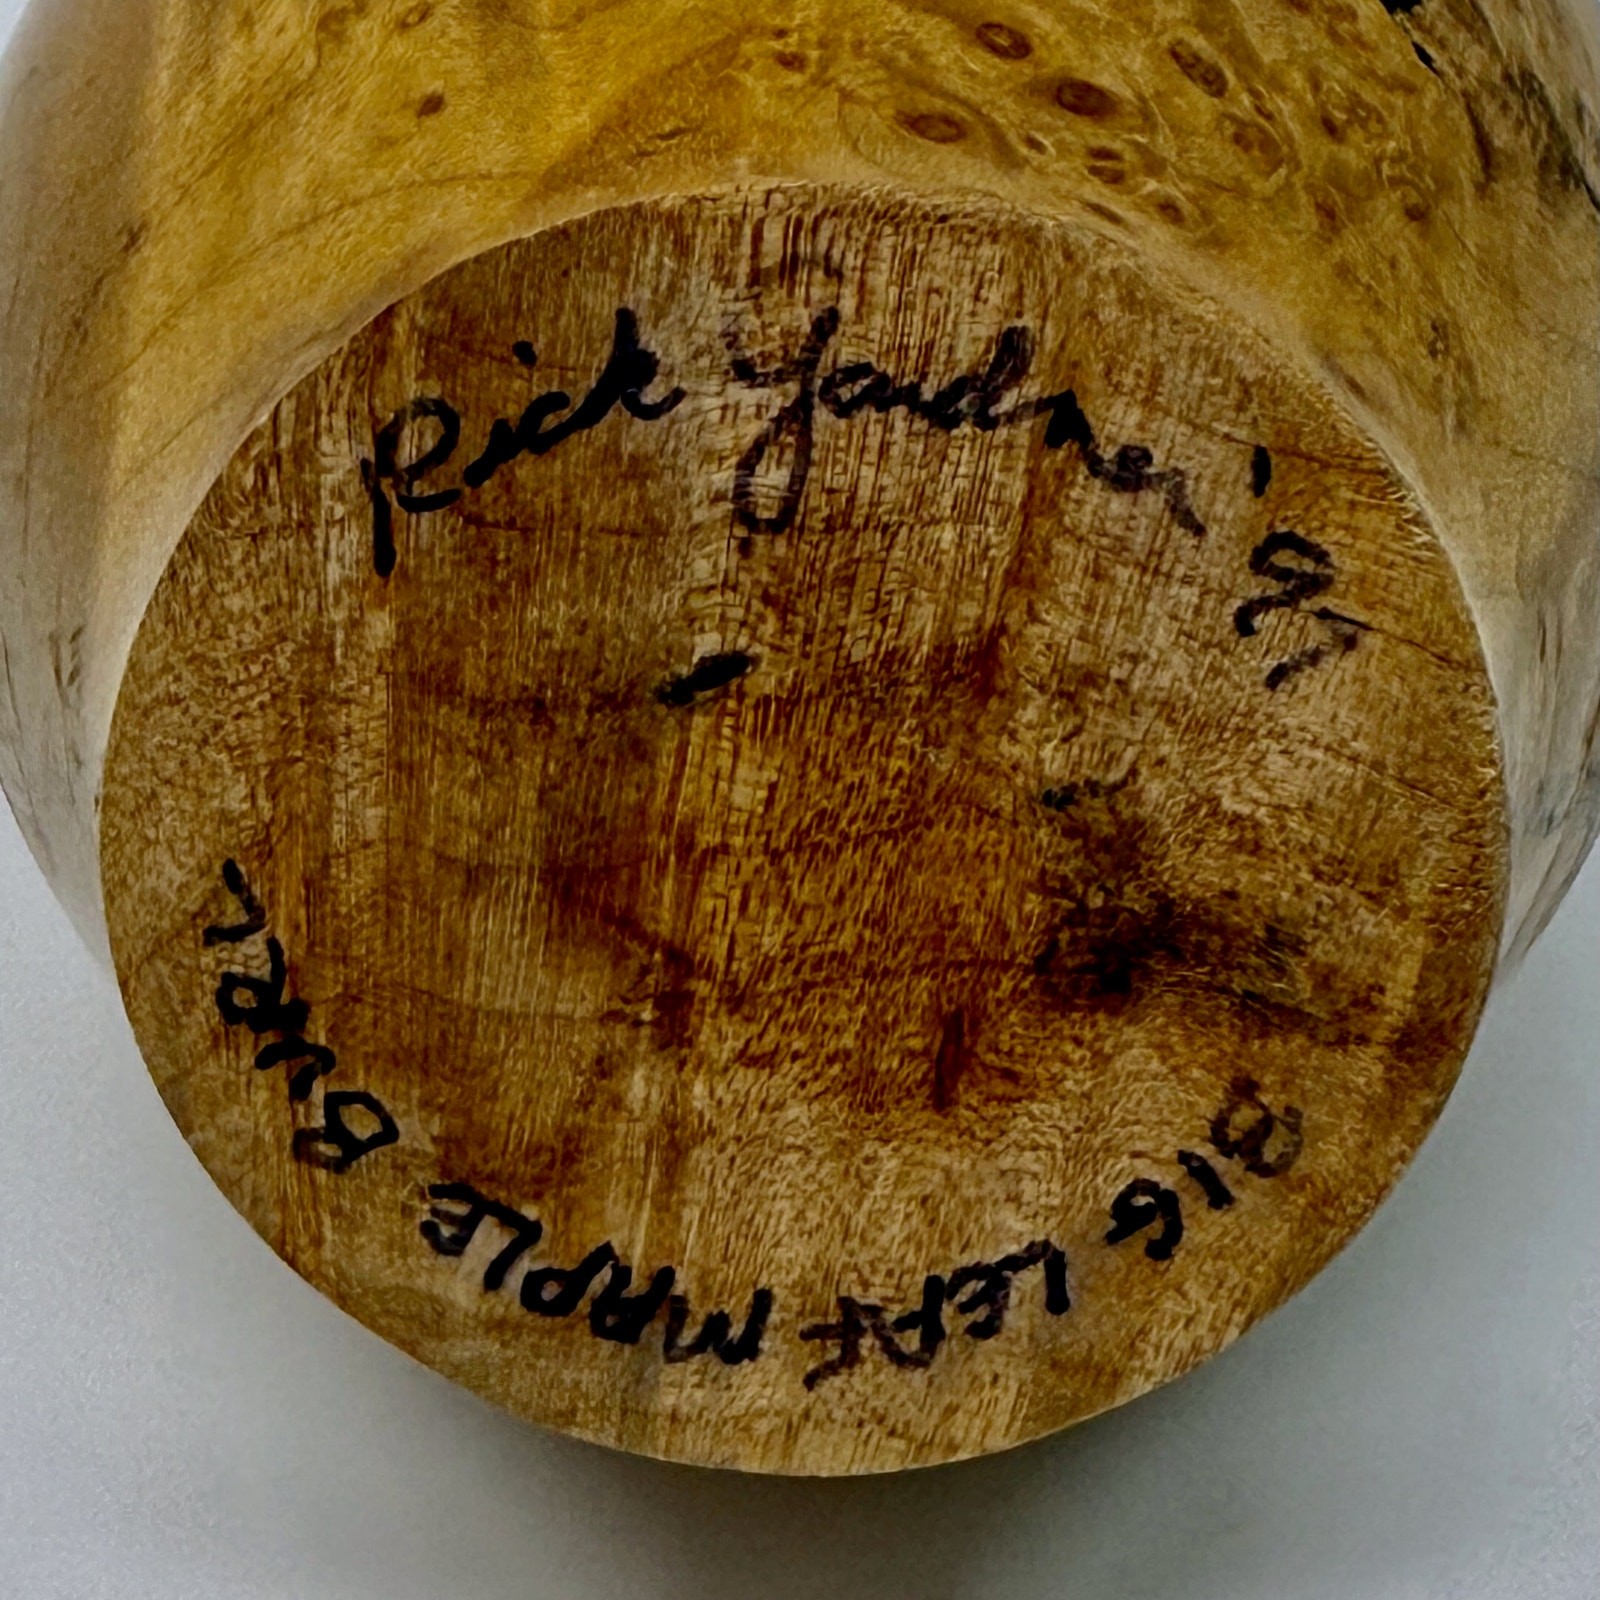 Rick Gardner '97
BIG LEAF MAPLE BURL